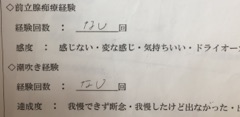 ◇前立腺痴療経験
経験回数： なし 回
感度： 感じない・変な感じ・気持ちいい・ドライオー
◇潮吹き経験
経験回数： なし 回
達成度： 我慢できず断念・我慢したけど出なかった・